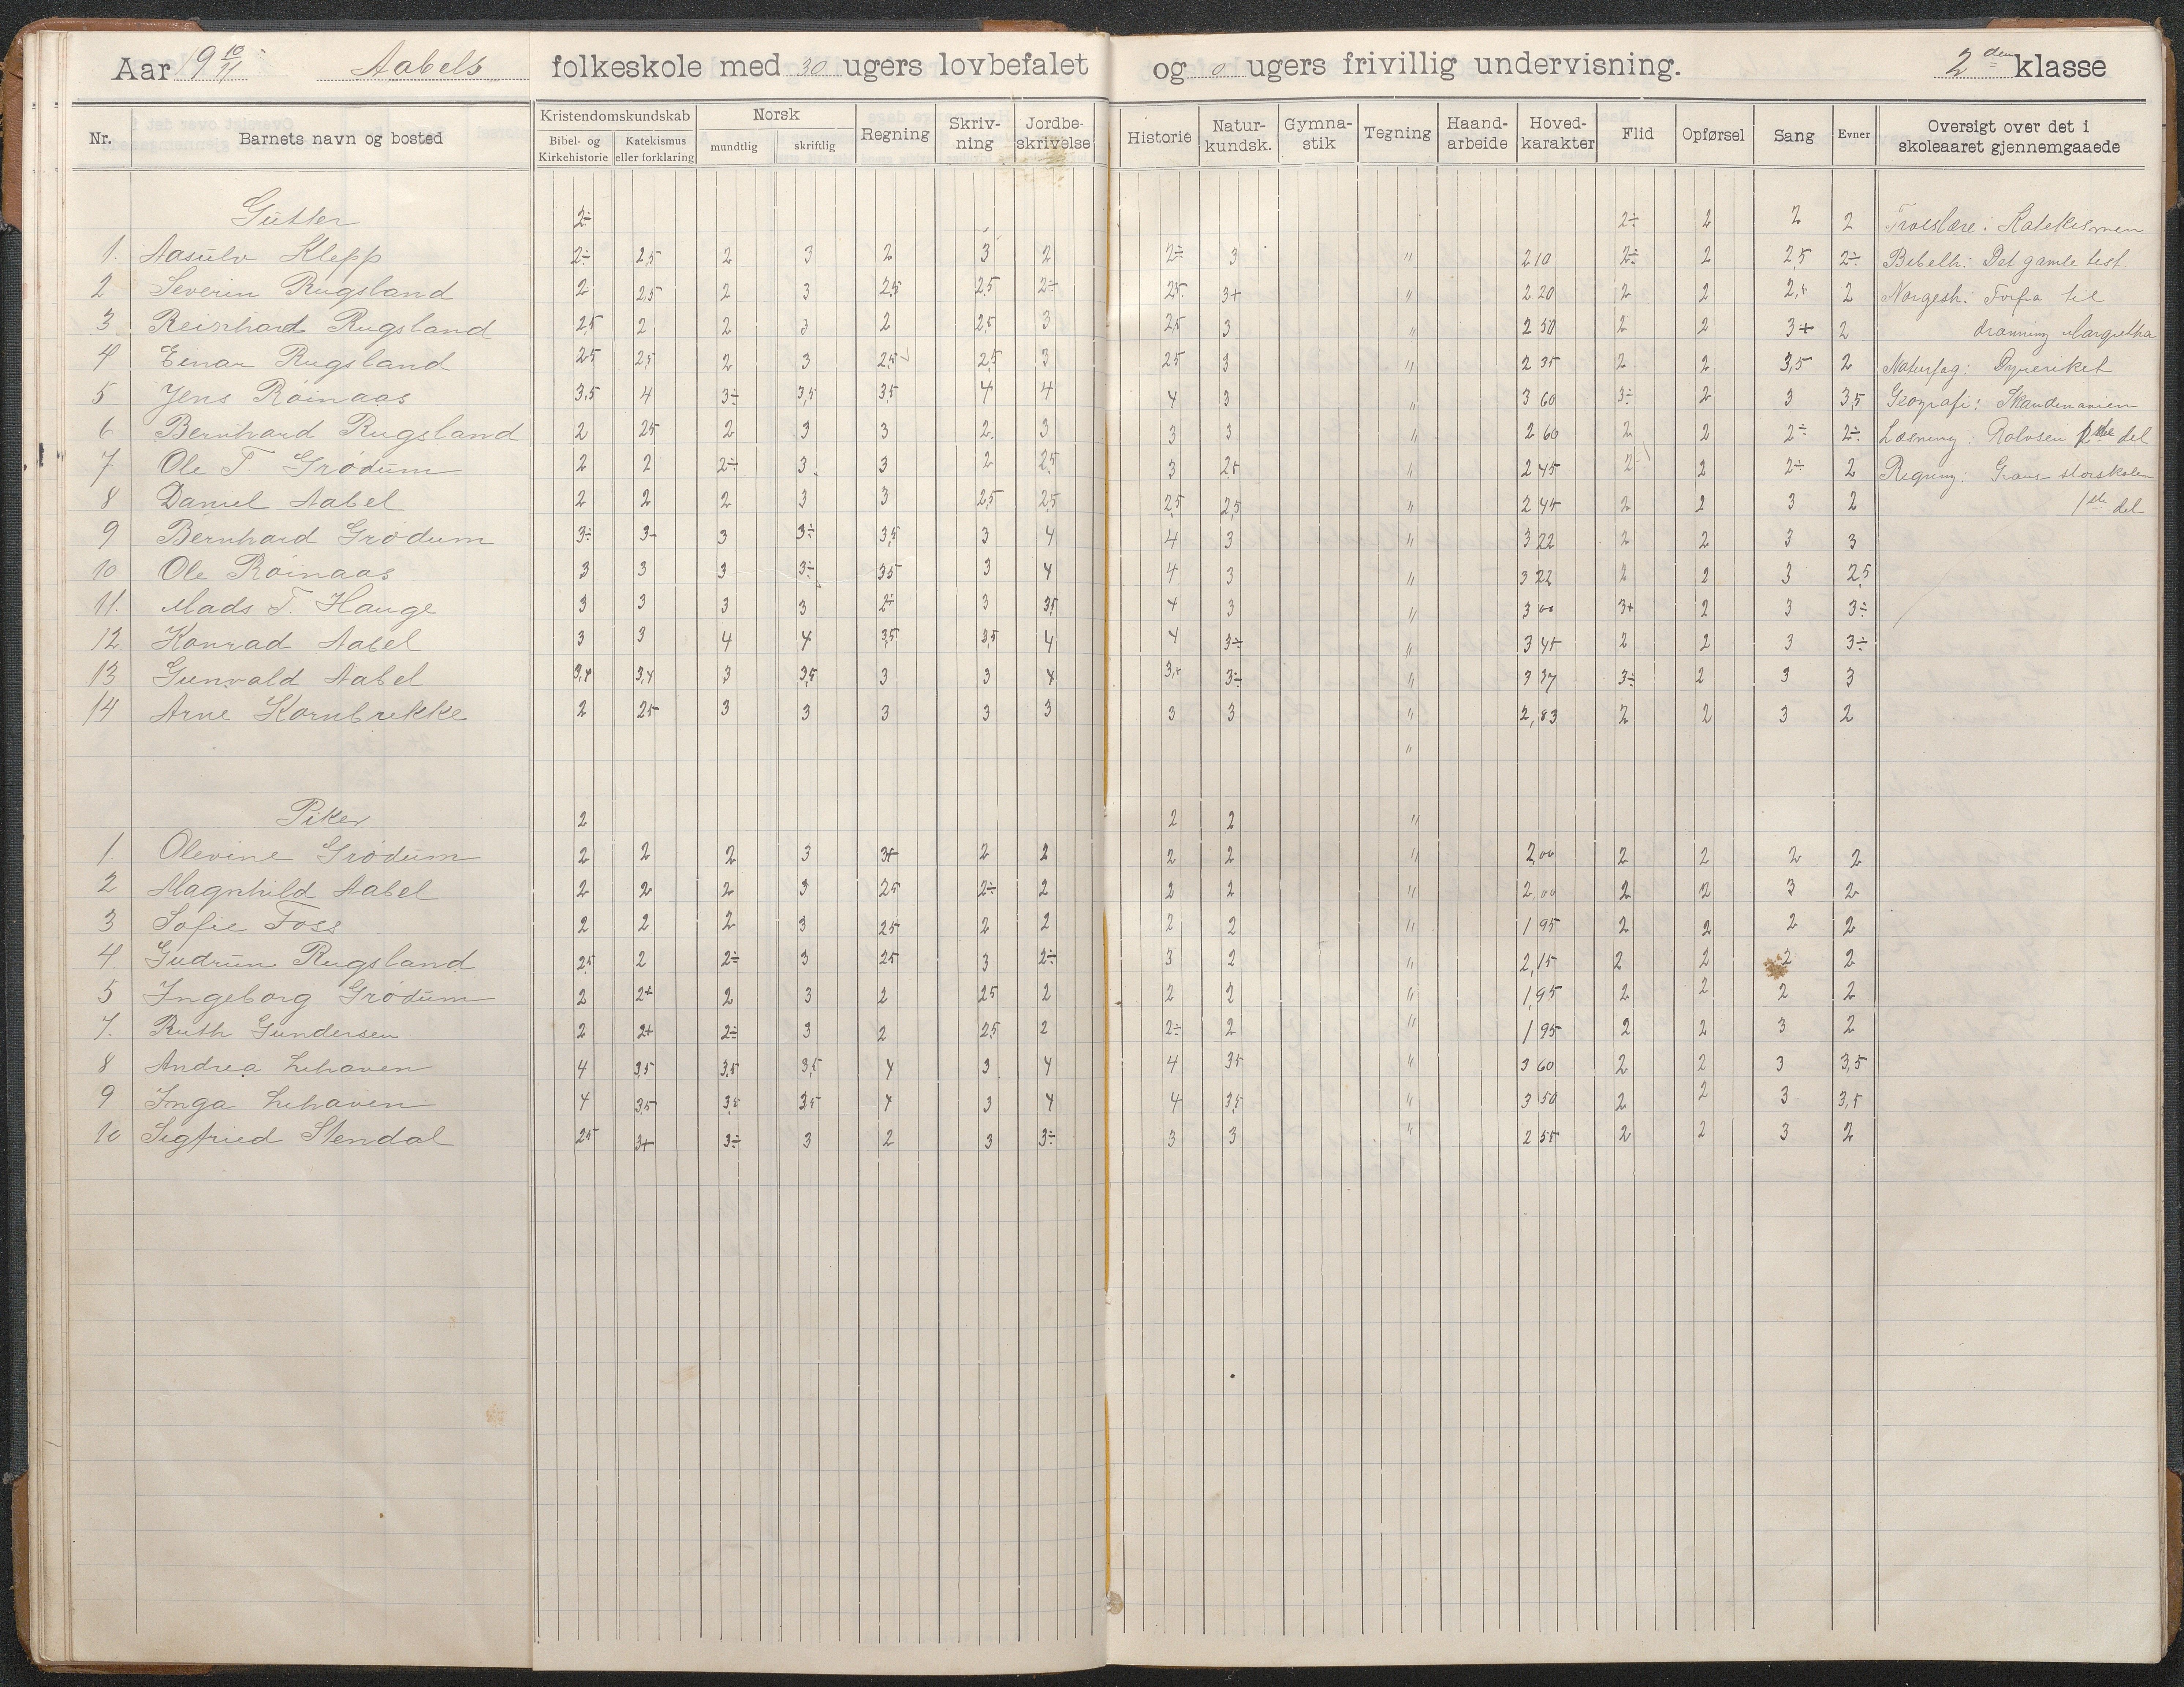 Aar 19 10/11 Aabels folkeskole med 30 ugers lovbefalet og 0 ugers frivillig undervisning. 2den klasse
Nr. Barnets navn og bosted Kristendomskundskab Bibel- og Kirkehistorie Katekismus eller forklaring Norsk mundtlig skriftlig Regning Skriv-ning Jordbe-skrivelse Historie Natur-kundsk. Gymna-stik Tegning Haand-arbeide Hoved-karakter Flid Opførsel Sang Evner Oversigt over det i skoleaaret gjennemgaaede
Gutter 2÷ 2÷ 2 2 2 Troeslære: Katekismen
1. Aasulv Klepp 2÷ 2,5 2 3 2 3 2 2÷ 3 " 2 10 2÷ 2 2,5 2÷ Bibelh: Det gamle test
2 Severin Rugsland 2÷ 2,5 2 3 2,5 2,5 2÷ 2,5 3+ " 2 20 2 2 2,5 2 Norgesh: Forfra til
3 Reinhard Rugsland 2,5 2 2 3 2 2,5 3 2,5 3 " 2 50 2 2 3+ 2 dronning Margretha
4 Einar Rugsland 2,5 2,5 2 3 2,5 2,5 3 2,5 3 " 2 35 2 2 3,5 2 Naturfag: Dyreriket
5 Jens Röinaas 3,5 4 3÷ 3,5 3,5 4 4 4 3 " 3 60 3÷ 2 3 3,5 Geografi: Skandinavien
6 Bernhard Rugsland 2 2,5 2 3 3 2 3 3 3 " 2 60 2 2 2÷ 2÷ Læsning: Rolvsen del
7 Ole T. Grödum 2 2 2÷ 3 3 2 2,5 3 2,5 " 2 45 2÷ 2 2÷ 2 Regning: storskolen
8 Daniel Aabel 2 2 2 3 3 2,5 2,5 2,5 2,5 " 2 45 2 2 3 2 1ste del
9 Bernhard Grödum 3÷ 3- 3 3÷ 3,5 3 4 4 3 " 3 22 2 2 3 3
10 Ole Röinaas 3 3 3 3÷ 3,5 3 4 4 3 " 3 22 2 2 3 2,5
11. Mads T. Hauge 3 3 3 3 2÷ 3 3,5 4 3 " 3 00 3+ 2 3 3÷
12. Konrad Aabel 3 3 4 4 3,5 3,5 4 4 3÷ " 3 45 2 2 3 3÷
13 Gunvald Aabel 3,4 3,4 3 3,5 3 3 4 3,5 3÷ " 3 37 3÷ 2 3 3
14 Arne Kornbrekke 2 2,5 3 3 3 3 3 3 3 " 2,83 2 2 3 2
"
Piker 2 2 2 "
1. Olevine Grödum 2 2 2 3 3+ 2 2 2 2 " 2,00 2 2 2 2
2 Magnhild Aabel 2 2 2 3 2,5 2÷ 2 2 2 " 2,00 2 2 3 2
3 Sofie Foss 2 2 2 3 2,5 2 2 2 2 " 1 95 2 2 2 2
4. Gudrun Rugsland 2,5 2 2÷ 3 2,5 3 2÷ 3 2 " 2,15 2 2 2 2
5 Ingeborg Grödum 2 2+ 2 3 2 2,5 2 2 2 " 1,95 2 2 2 2
7. Ruth Gundersen 2 2+ 2÷ 3 2 2,5 2 2÷ 2 " 1 95 2 2 3 2
8 Andrea Lihaven 4 3,5 3,5 3,5 4 3 4 4 3,5 " 3 60 2 2 3 3,5
9 Inga Lihaven 4 3,5 3,5 3,5 4 3 4 4 3,5 " 3 50 2 2 3 3,5
10 Sigfried Stendal 2,5 3+ 3÷ 3 2 3 3÷ 3 3 " 2 55 2 2 3 2